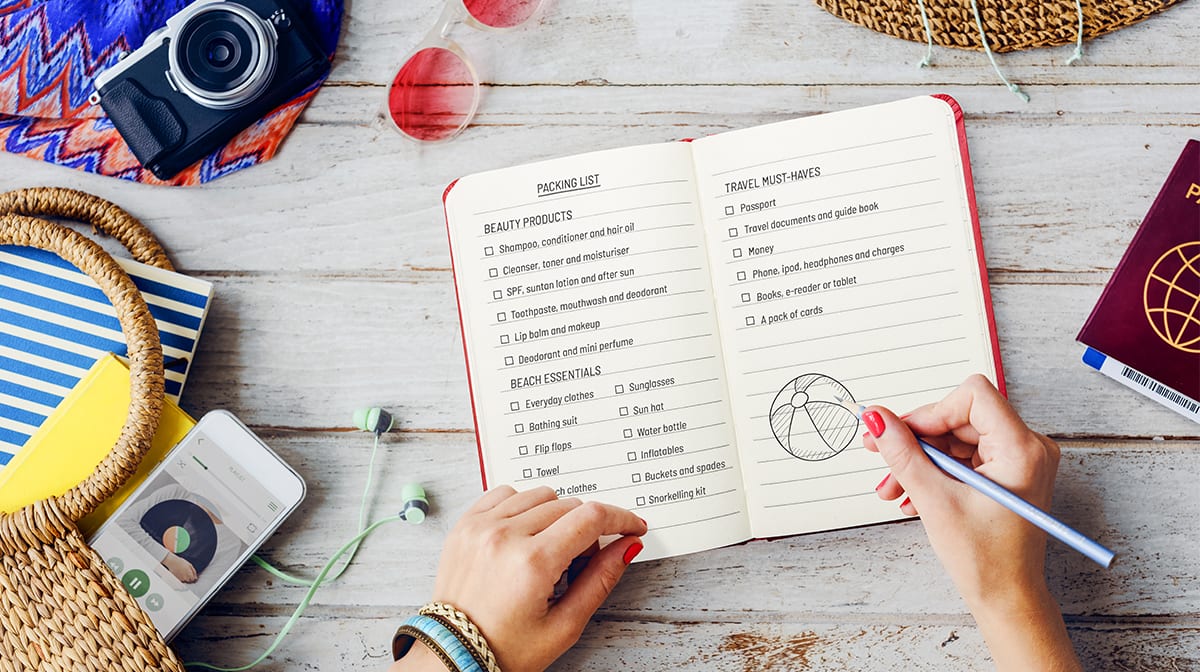 PACKING LIST
BEAUTY PRODUCTS
Shampoo, conditioner and hair oil
Cleanser, toner and moisturiser
SPF, suntan lotion and after sun
Toothpaste, mouthwash and deodorant
Lip balm and makeup
Deodorant and mini perfume
BEACH ESSENTIALS
Everyday clothes
Bathing suit
Flip flops
Towel
clothes
Sunglasses
Sun hat
Water bottle
Inflatables
Buckets and spades
Snorkelling kit
TRAVEL MUST-HAVES
Passport
Travel documents and guide book
Money
Phone, ipod, headphones and charges
Books, e-reader or tablet
A pack of cards
PLAYLIST